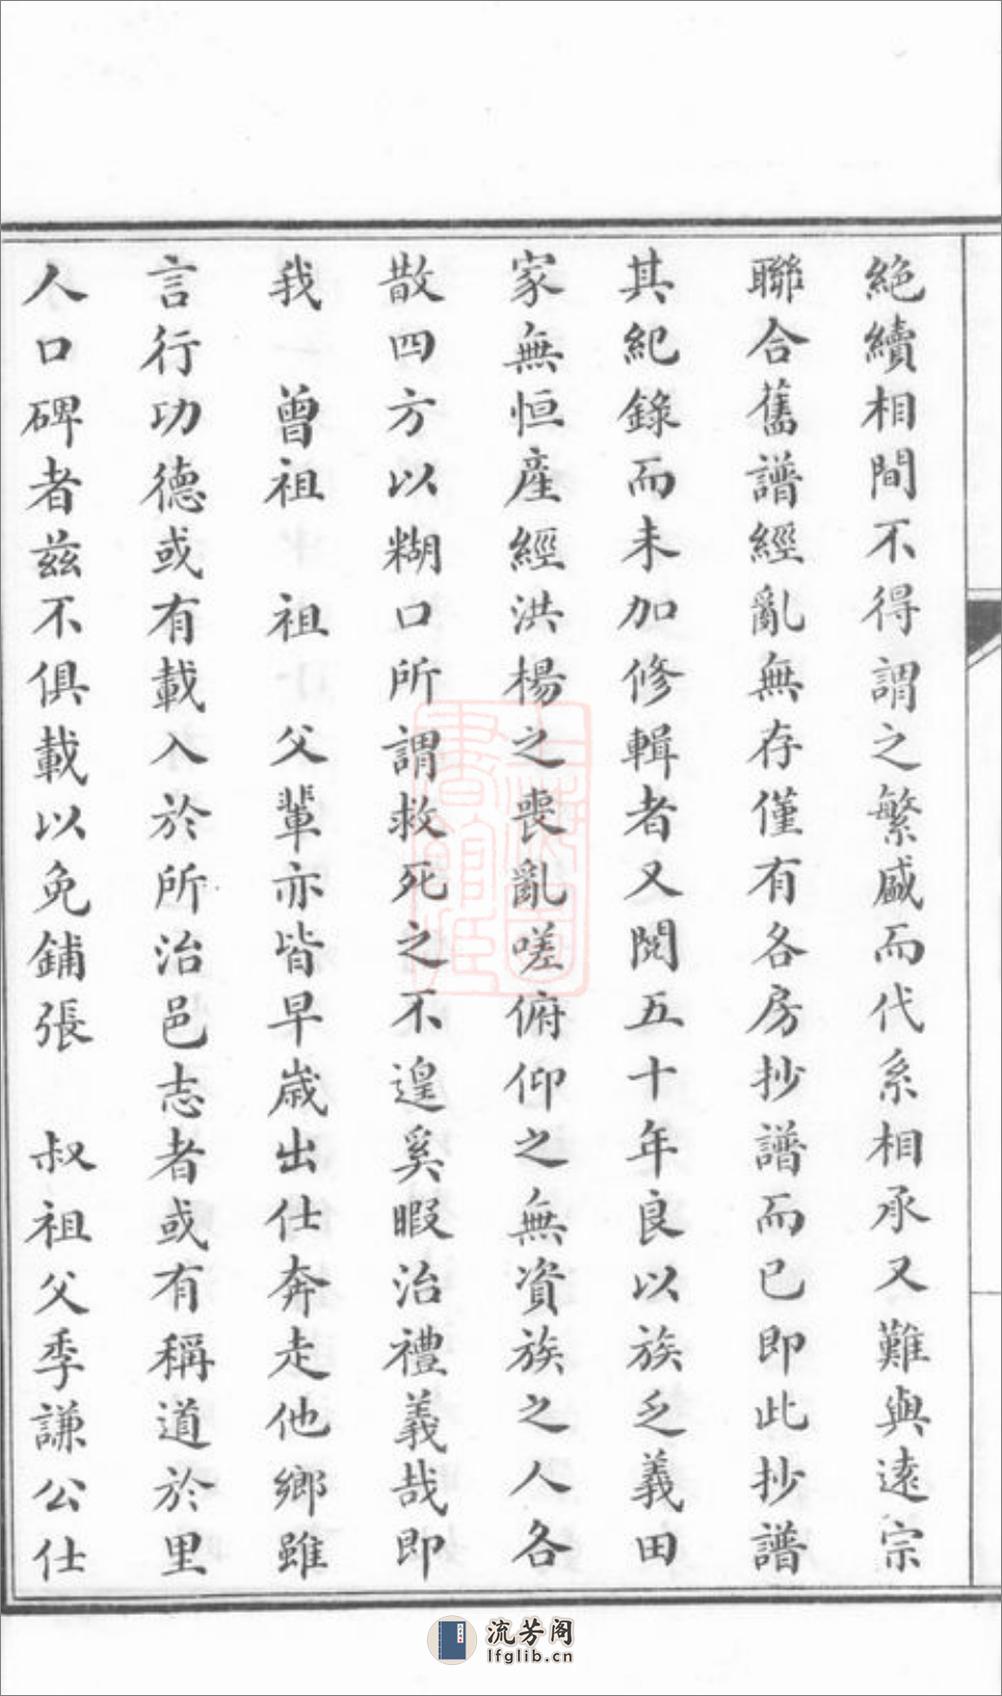 絶續相間不得謂之繁盛而代系相承又難與遠宗
聯合舊譜經亂無存僅有各房抄譜而已即此抄譜
其紀錄而未加修輯者又閱五十年良以族乏義田
家無恒產經洪楊之喪亂嗟俯仰之無資族之人各
散四方以糊口所謂救死之不遑奚暇治禮義哉即
我 曾祖 祖 父輩亦皆早歲出仕奔走他鄉雖
言行功德或有載入於所治邑志者或有稱道於里
人口碑者茲不俱載以免鋪張 叔祖父季謙公仕
流芳阁
lfglib.cn